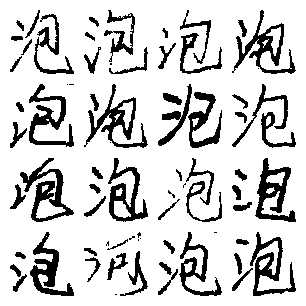 泡泡泡泡
泡泡泡泡
泡泡泡泡
泡泡泡